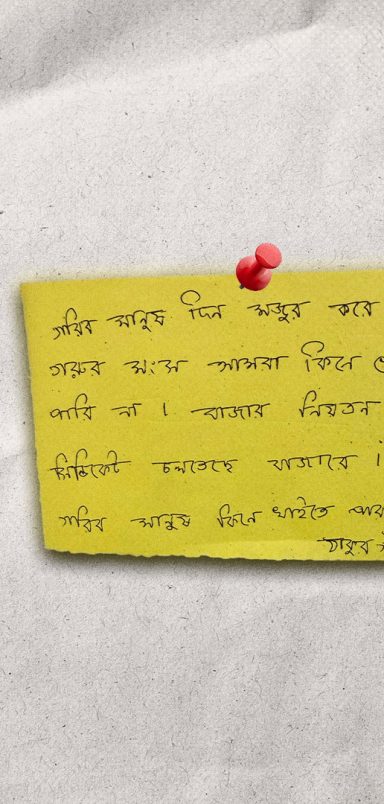 গরিব মানুষ দিন মজুর করে
গরুর মংস আমরা কিনে
পারি না । বাজার নিয়তন
সিন্ডিকেট চলতেছে বাজারে ।
গরিব মানুষ কিনে খাইতে